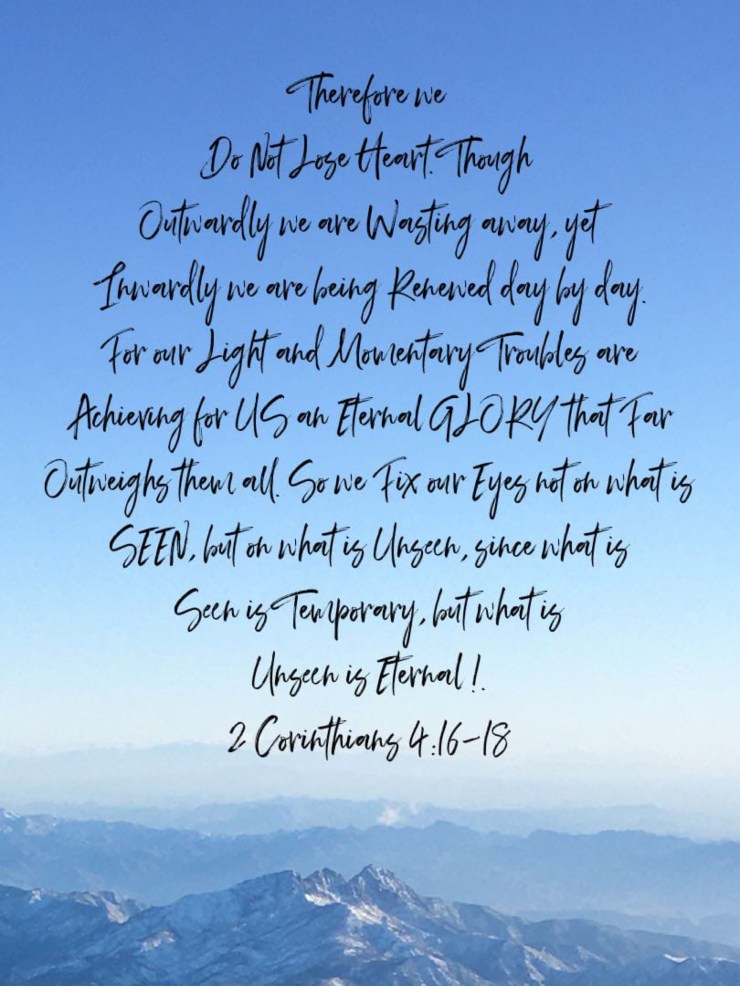 Therefore we
Do Not Lose Heart. Though
Outwardly we are Wasting away, yet
Inwardly we are being Renewed day by day.
For our Light and Momentary Troubles are
Achieving for US an Eternal GLORY that Far
Outweighs them all. So we Fix our Eyes not on what is
SEEN, but on what is Unseen, since what is
Seen is Temporary, but what is
Unseen is Eternal!.
2 Corinthians 4:16-18